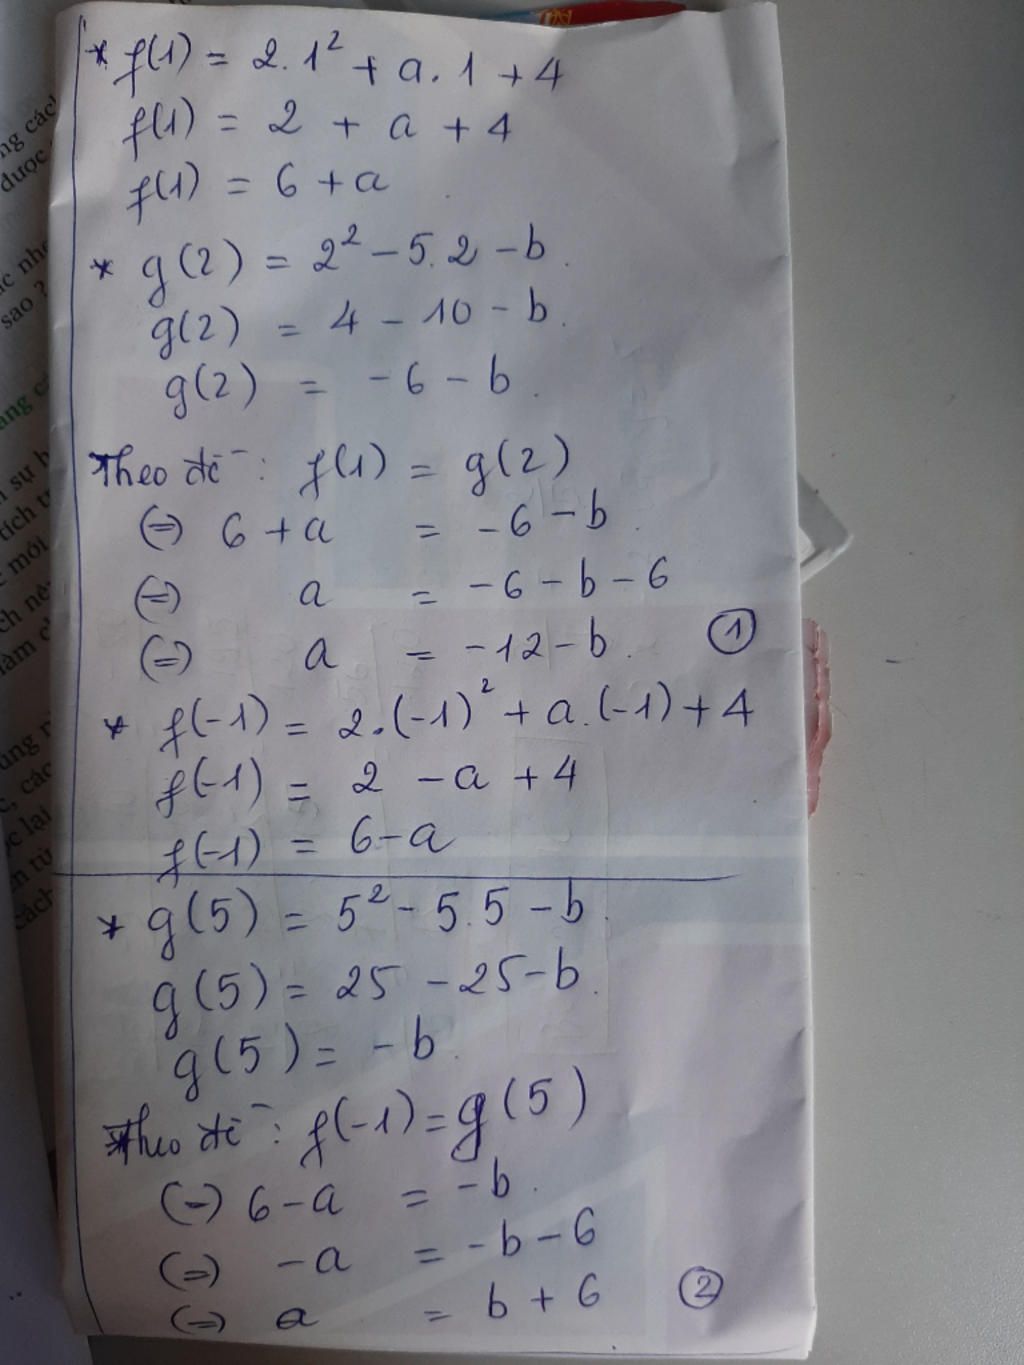 * f(1) = 2.1² + a.1 + 4
f(1) = 2 + a + 4
f(1) = 6 + a
* g(2) = 2² - 5.2 - b.
g(2) = 4 - 10 - b.
g(2) = -6 - b.
Theo đề: f(1) = g(2)
(=) 6 + a = -6 - b.
(=) a = -6 - b - 6
(=) a = -12 - b. ①
* f(-1) = 2.(-1)² + a.(-1) + 4
f(-1) = 2 - a + 4
f(-1) = 6 - a
* g(5) = 5² - 5.5 - b.
g(5) = 25 - 25 - b.
g(5) = -b.
Theo đề: f(-1) = g(5)
(=) 6 - a = -b.
(=) -a = -b - 6
(=) a = b + 6 ②
ng các
được
sao?
ang c
sự
tích t
mới
ch
làm
các
lại
cách